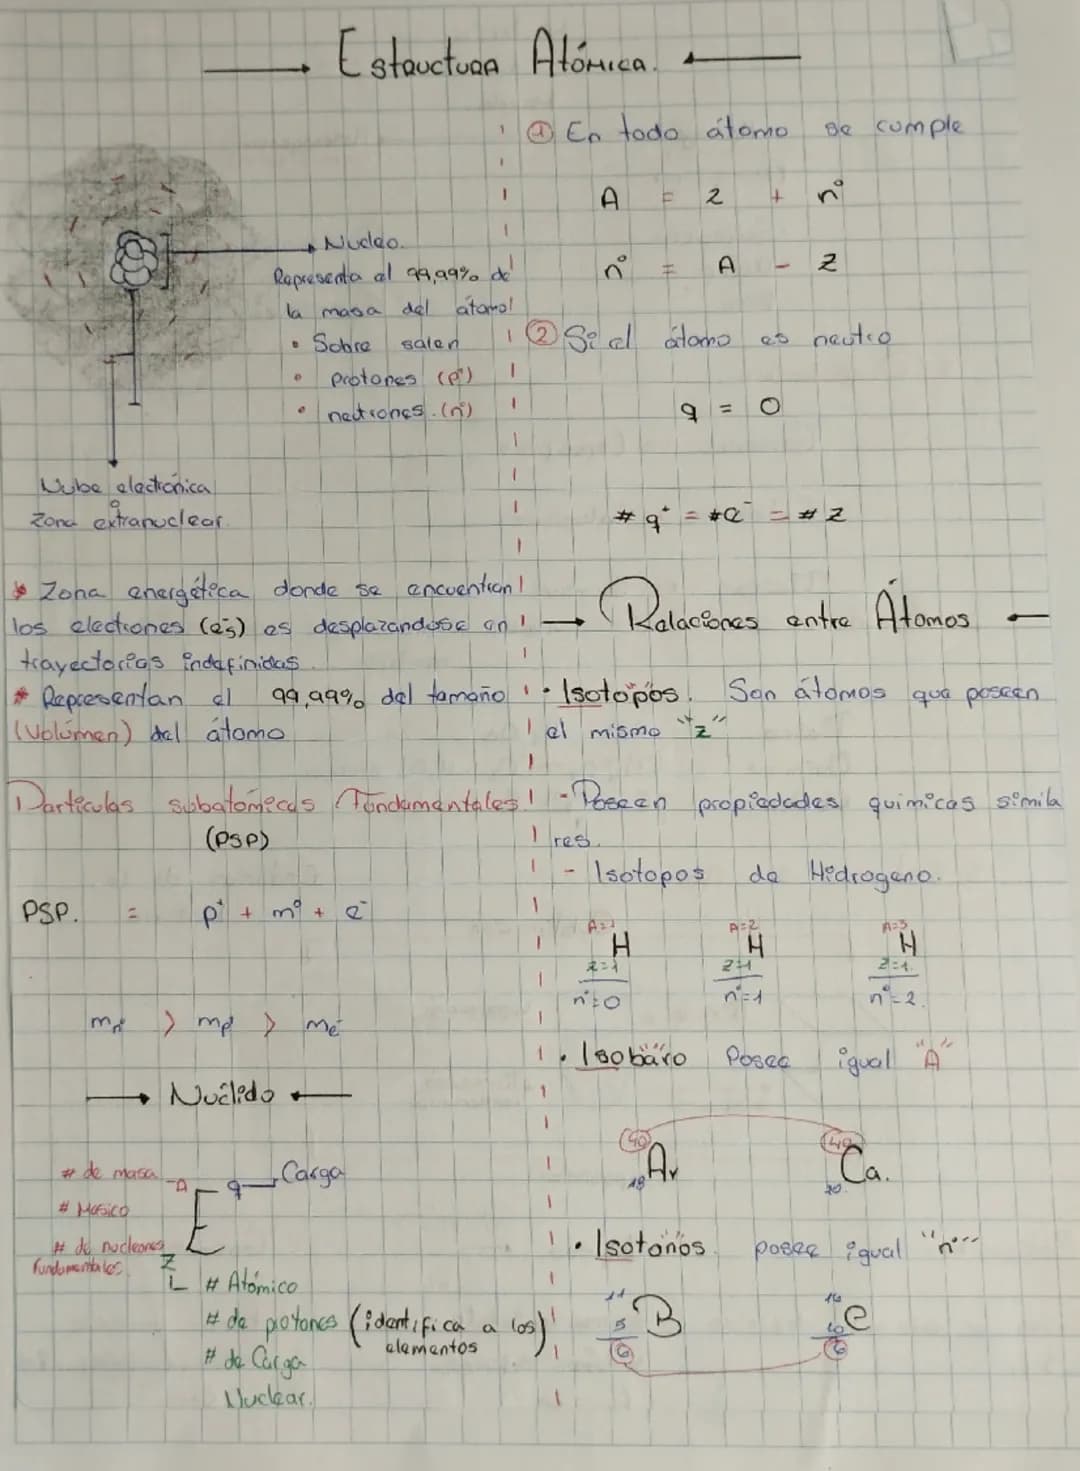 Estructura Atómica.
Nucleo.
Representa el 99,99% de
la masa del átomo
• Sobre salen
• protones (p⁺)
• neutrones (n°)
Nube electrónica
o
Zona extranuclear
* Zona energética donde se encuentran
los electrones (es) es desplazandose en
trayectorias indefinidas
* Representan el 99,99% del tamaño
(Volúmen) del átomo
Particulas subatomicas Fundamentales
(PSP)
PSP. = p⁺ + m° + e⁻
mn° > mp⁺ > me⁻
→ Nuclido ←
# de masa A
# Masico
# de nucleones
Fundamentales
q Carga
E
Z
# Atómico
# de protones (identifica a los
elementos)
# de Carga
Nuclear.
① En todo átomo se cumple
A = Z + n°
n° = A - Z
② Si el átomo es neutro
q = 0
# q⁺ = #e⁻ = # Z
→ Relaciones entre Átomos ←
• Isotopos. Son átomos que poseen
el mismo "z"
- Poseen propiedades quimicas simila
res.
- Isotopos de Hidrogeno.
A=1 A=2 A=3
H H H
z=1 z=1 z=1.
n°=0 n°=1 n°=2.
• Isobaro Posee igual "A"
40 40
Ar Ca.
18 20
• Isotonos posee igual "n°"
11
B
5
6
16
10
6